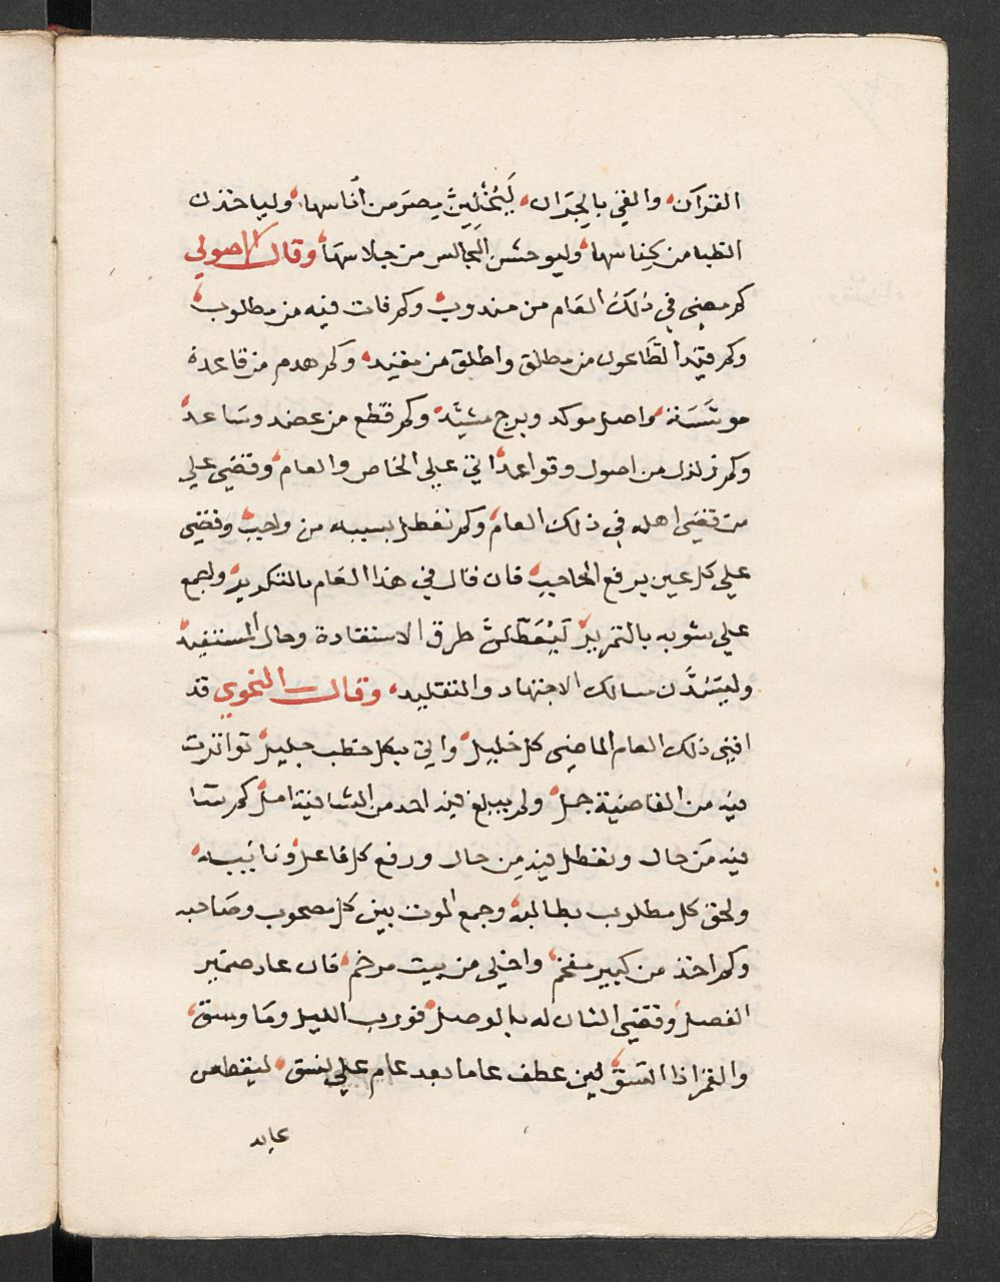 القرآن، والقي بالجران، ليخلين مصر من أناسها، ولياخذن
الظبا من كناسها، وليوحشن المجالس من جلاسها، وقال الاصولي
كم مضى في ذلك العام من مندوب، وكم فات فيه من مطلوب،
وكم قيد الطاعون من مطلق واطلق من مقيد، وكم هدم من قاعدة
موسسة، واصل موكد وبرج مشيد، وكم قطع من عضد وساعد،
وكم زلزل من اصول وقواعد، اتى علي الخاص والعام، وقضي علي
من قضى اهله في ذلك العام، وكم تعطل بسببه من واجب، وقضي
علي كل عين برفع الحاجب، فان قال في هذا العام بالتكرير، ولجمع
علي بالتمرير، ليعطلن طرق الاستفادة وحال المستفيد،
وليسدن مسالك الاجتهاد والتقليد، وقال النحوي قد
افنى ذلك العام الماضي كل خليل، واتى بكل خطب جليل، تواترت
فيه من القاضية جمل، ولم يبلغ فيه احد من امل، كم سا
فيه من حال وتعطل فيه من حال ورفع كل فاعل ونائبه،
ولحق كل مطلوب بطالبه، وجمع الموت بين كل مصحوب وصاحبه
وكم اخذ من كبير مفخم، واخلى من بيت مرخم، فان عاد ضمير
الفصل، وقضى الشان له بالوصل، فورب الليل وما وسق،
والقمر اذا اتسق، لين عطف عاما بعد عام علي نسق، ليقطعن